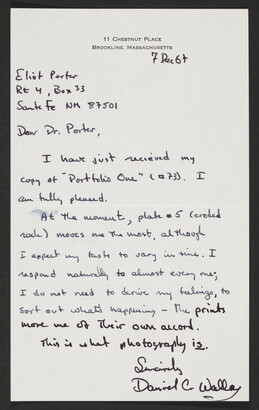 11 CHESTNUT PLACE
BROOKLINE, MASSACHUSETTS
7 Dec 67
Eliot Porter
Rt 4, Box 33
Santa Fe NM 87501
Dear Dr. Porter,
I have just recieved my
copy of "Portfolio One" (#73). I
am fully pleased.
At the moment, plate #5 (eroded
rock) moves me the most, although
I expect my taste to vary in time. I
respond naturally to almost every one;
I do not need to derive my feelings, to
sort out what's happening – the prints
move me of their own accord.
This is what photography is.
Sincerely
Daniel C.